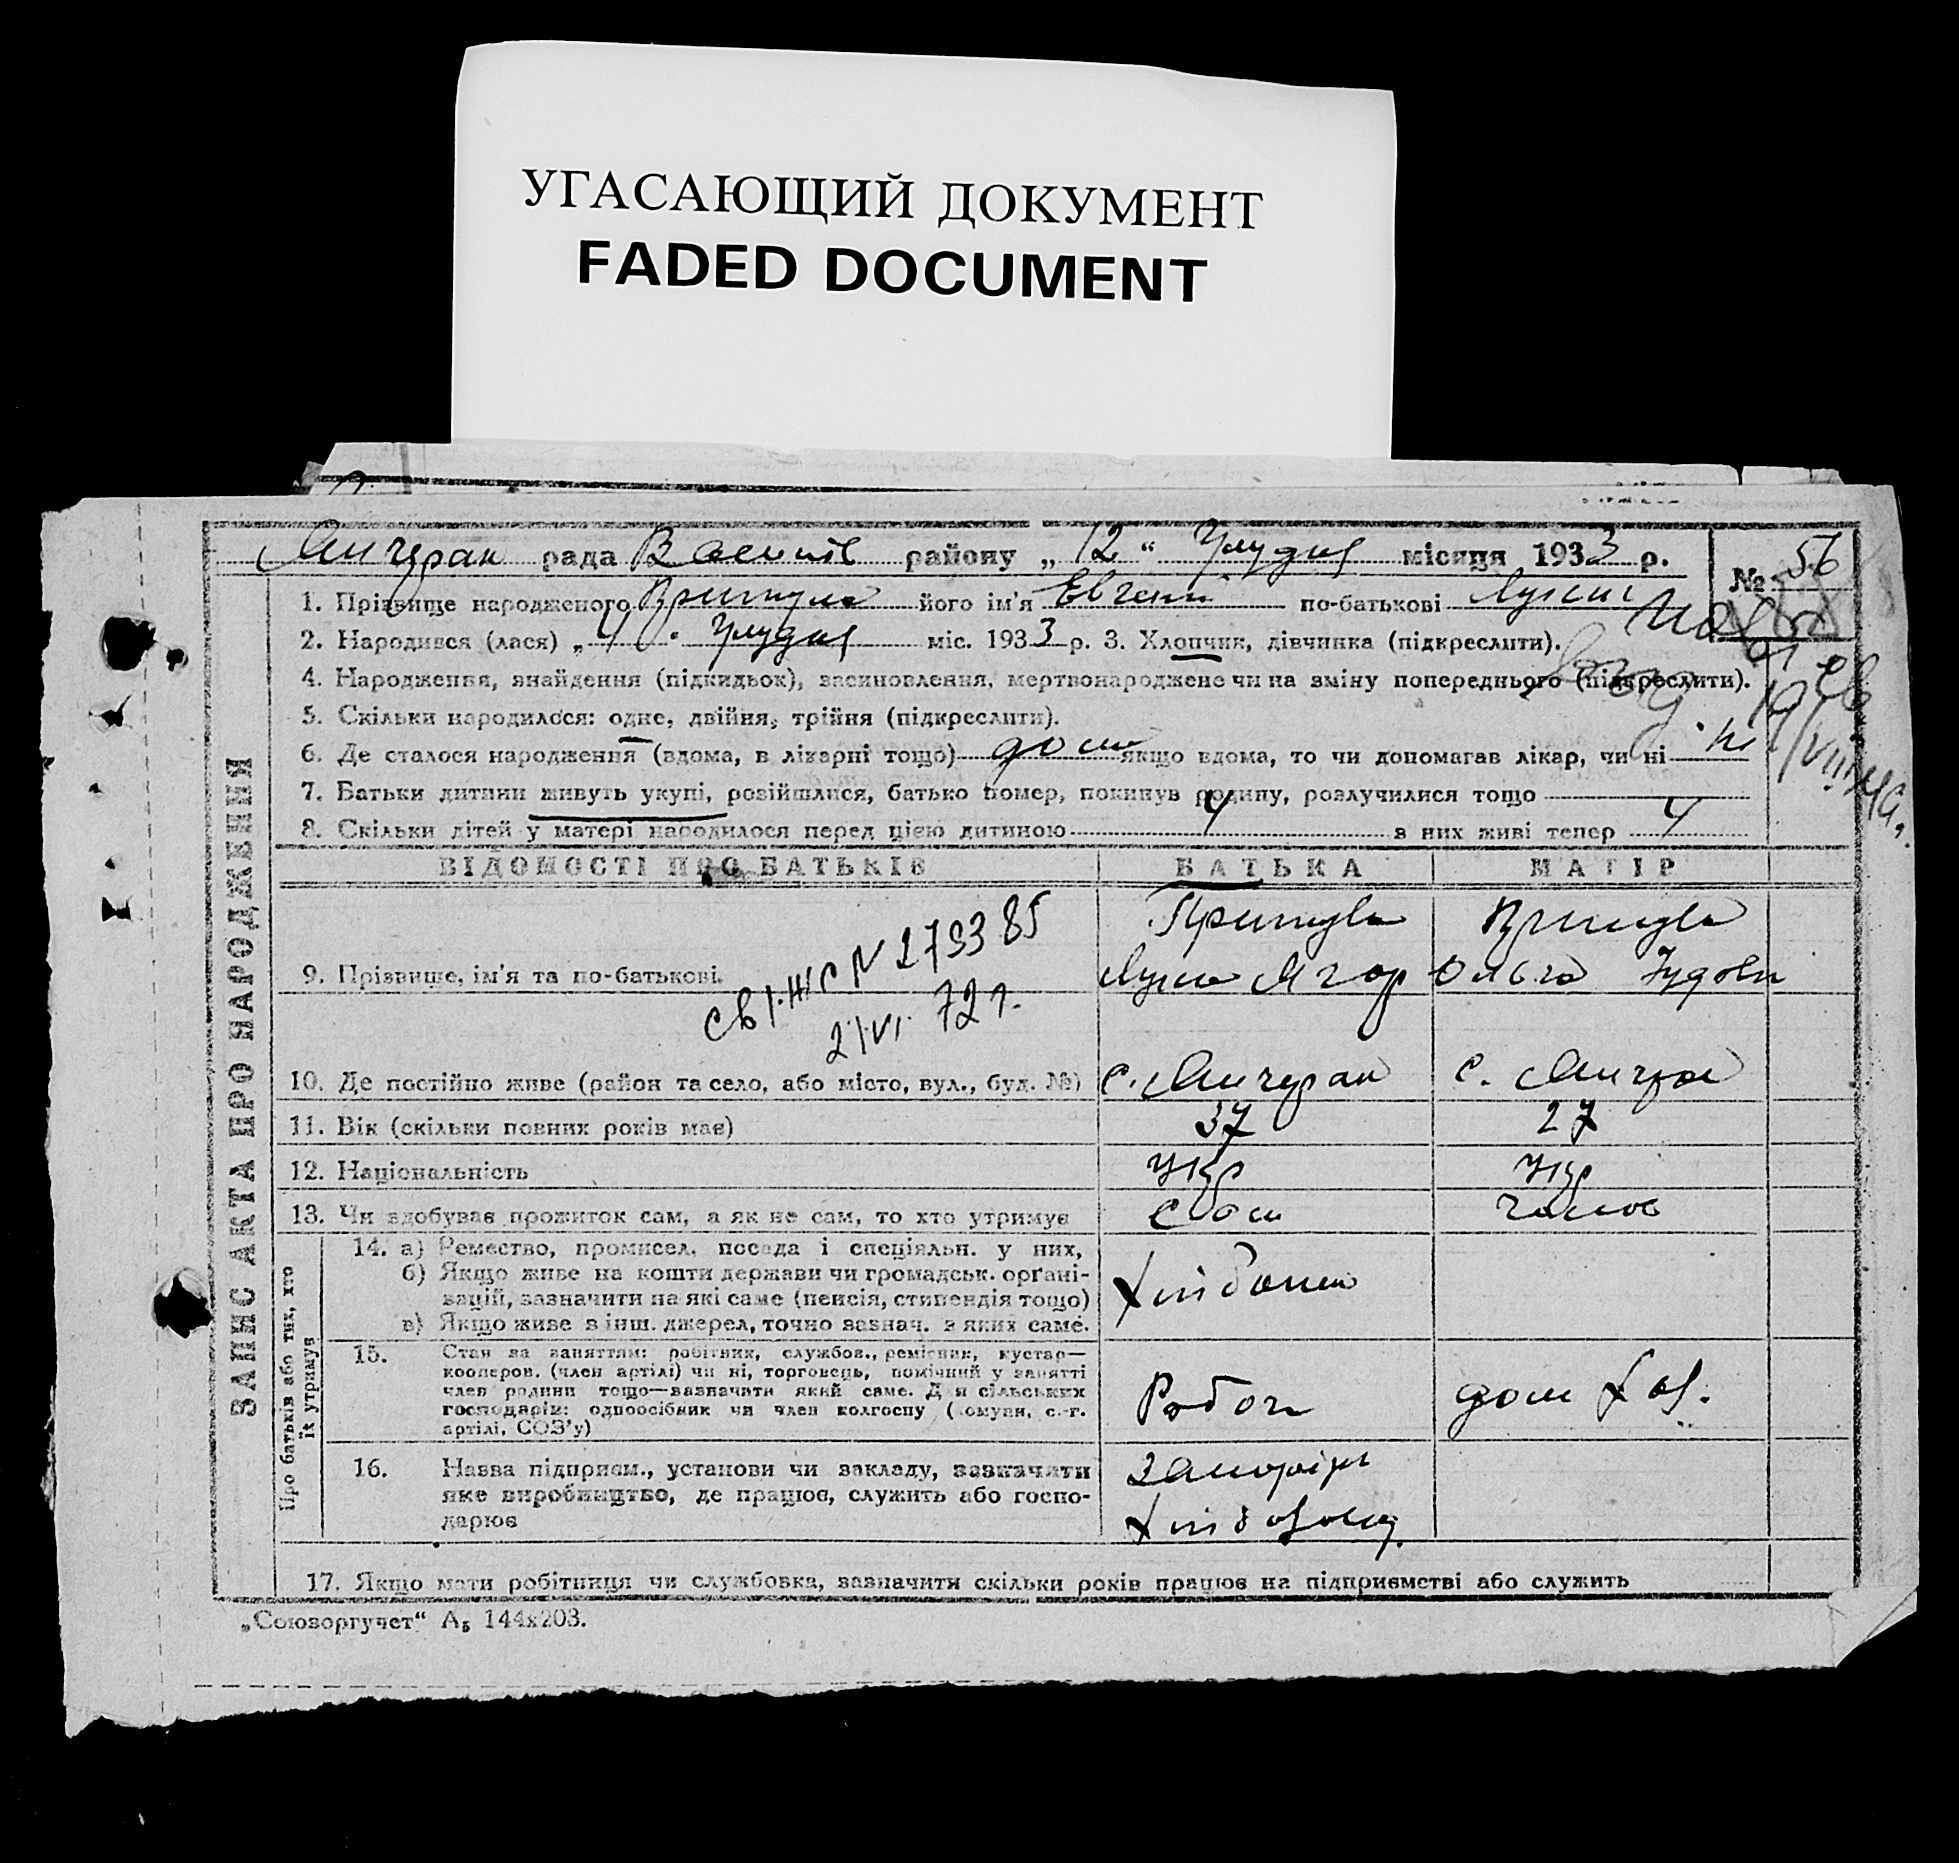 УГАСАЮЩИЙ ДОКУМЕНТ
FADED DOCUMENT
ЗАПИС АКТА ПРО НАРОДЖЕННЯ
Мичуран рада Василів району „ 12 “ Грудня місяця 1933 р.
№ 56
1. Прізвище народженого Притула його ім'я Евгений по-батькові
2. Народився (лася) „ 4 “ Грудня міс. 1933 р. 3. Хлопчик, дівчинка (підкреслити).
4. Народження, знайдення (підкидьок), засиновлення, мертвонароджене чи на зміну попереднього (підкреслити).
5. Скільки народилося: одне, двійня, трійня (підкреслити).
6. Де сталося народження (вдома, в лікарні тощо) дома якщо вдома, то чи допомагав лікар, чи ні ні
7. Батьки дитини живуть укупі, розійшлися, батько помер, покинув родину, розлучилися тощо
8. Скільки дітей у матері народилося перед цією дитиною 4 з них живі тепер 4
ВІДОМОСТІ ПРО БАТЬКІВ БАТЬКА МАТІР
Притула Притула
9. Прізвище, ім'я та по-батькові. Ольга
№ 279385
2/VI 72 г.
10. Де постійно живе (район та село, або місто, вул., буд. №) с. Мичуран с.
11. Вік (скільки повних років має) 37 27
12. Національність Укр Укр
13. Чи здобуває прожиток сам, а як не сам, то хто утримує сам
Про батьків або тих, хто їх утримує
14. а) Ремество, промисел, посада і спеціяльн. у них,
б) Якщо живе на кошти держави чи громадськ. орґані-
зацій, зазначити на які саме (пенсія, стипендія тощо)
в) Якщо живе з інш. джерел, точно зазнач. з яких саме.
15. Стан за заняттям: робітник, службов., ремісник, кустар—
кооперов. (член артілі) чи ні, торговець, помічний у занятті
член родини тощо—зазначити який саме. Для сільських
господарів: одноосібник чи член колгоспу (комуни, с.-г.
артілі, СОЗ'у)
Робоч дом хоз.
16. Назва підприєм., установи чи закладу, зазначити
яке виробництво, де працює, служить або госпо-
дарює
17. Якщо мати робітниця чи службовка, зазначити скільки років працює на підприємстві або служить
„Союзоргучет“ А₅ 144x203.